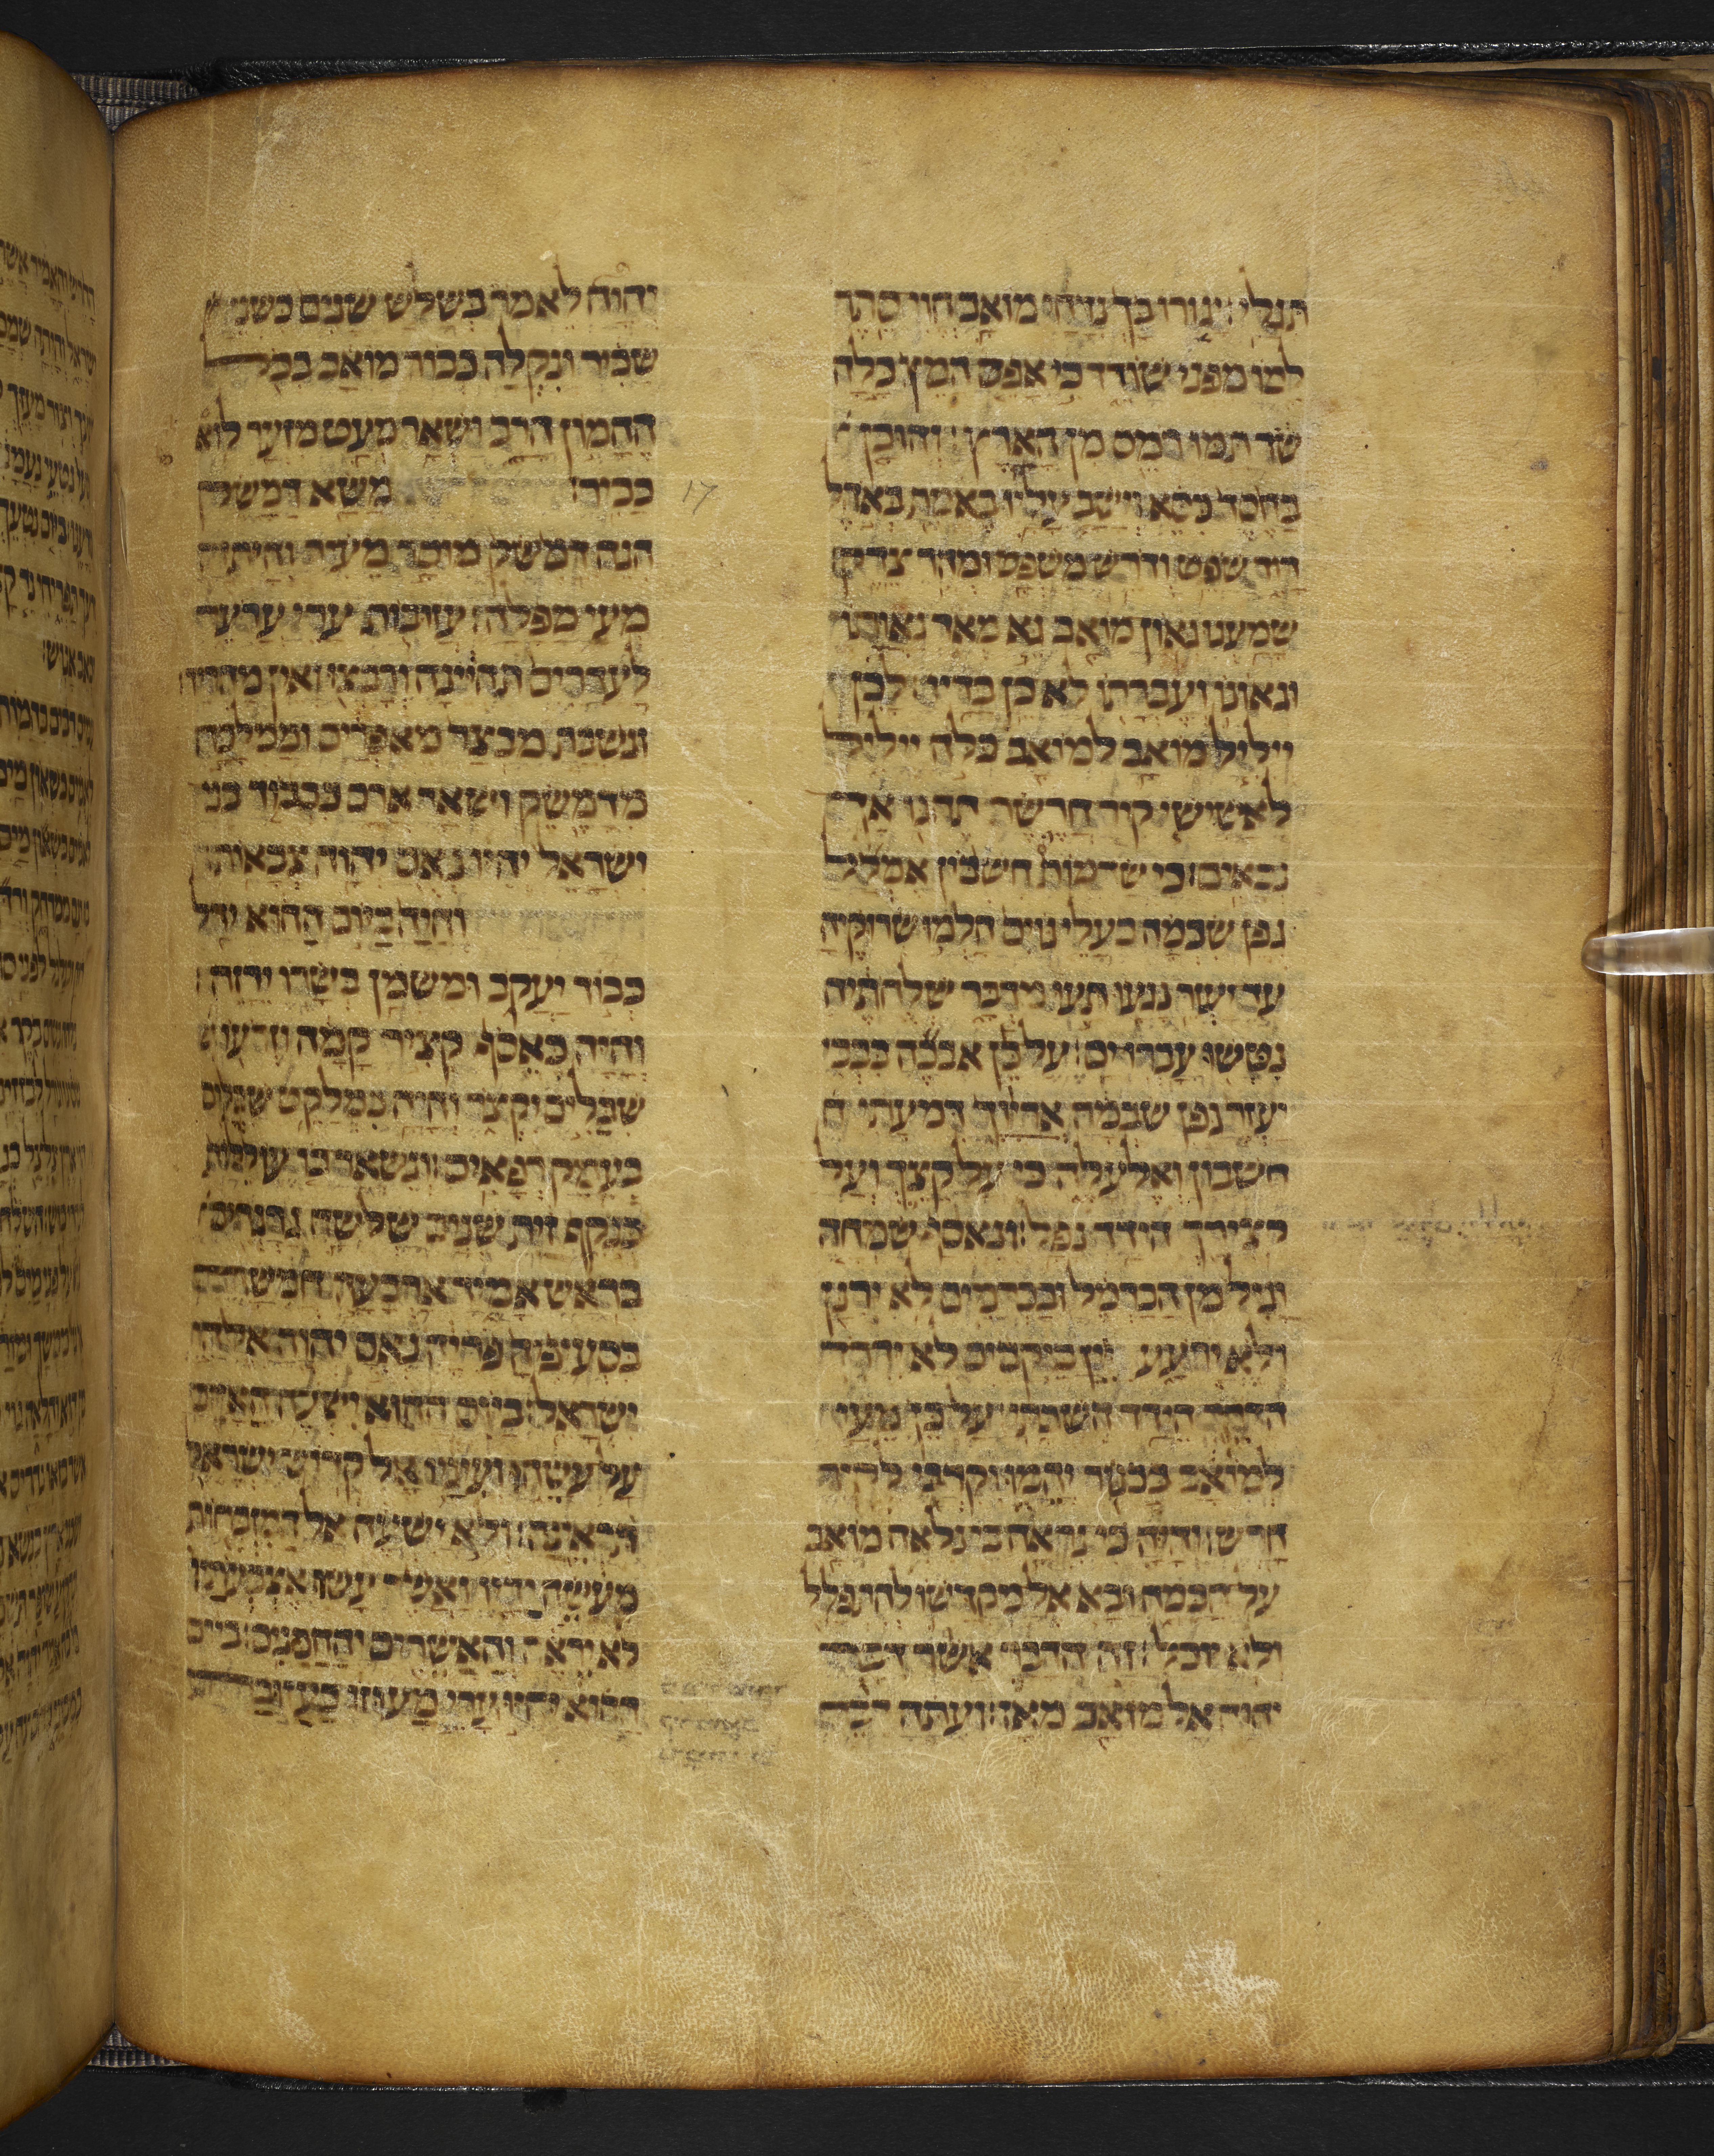 תגלי: יגורו בך נדחי מואב הוי סתר
למו מפני שודד כי אפס המץ כלה
שד תמו רמס מן הארץ: והוכן
בחסד כסא וישב עליו באמת באהל
דוד שפט ודרש משפט ומהר צדק:
שמענו גאון מואב גא מאד גאותו
וגאונו ועברתו לא כן בדיו: לכן
ייליל מואב למואב כלה ייליל
לאשישי קיר חרשת תהגו אך
נכאים: כי שדמות חשבון אמלל
גפן שבמה בעלי גוים הלמו שרוקיה
עד יעזר נגעו תעו מדבר שלחתיה
נטשו עברו ים: על כן אבכה בבכי
יעזר גפן שבמה אריוך דמעתי
חשבון ואלעלה כי על קיצך ועל
קצירך הידד נפל: ונאסף שמחה
וגיל מן הכרמל ובכרמים לא ירנן
ולא ירעע יין ביקבים לא ידרך
הדרך הידד השבתי: על כן מעי
למואב ככנור יהמו וקרבי לקיר
חרש: והיה כי נראה כי נלאה מואב
על הבמה ובא אל מקדשו להתפלל
ולא יוכל: זה הדבר אשר דבר
יהוה אל מואב מאז: ועתה דבר
יהוה לאמר בשלש שנים כשני
שכיר ונקלה כבוד מואב בכל
ההמון הרב ושאר מעט מזער לוא
כביר: משא דמשק
17
הנה דמשק מוסר מעיר והיתה
מעי מפלה: עזבות ערי ערער
לעדרים תהיינה ורבצו ואין מחריד:
ונשבת מבצר מאפרים וממלכה
מדמשק ושאר ארם ככבוד בני
ישראל יהיו נאם יהוה צבאות:
והיה ביום ההוא ידל
כבוד יעקב ומשמן בשרו ירזה:
והיה כאסף קציר קמה וזרעו
שבלים יקצור והיה כמלקט שבלים
בעמק רפאים: ונשאר בו עוללת
כנקף זית שנים שלשה גרגרים
בראש אמיר ארבעה חמשה
בסעיפיה פריה נאם יהוה אלהי
ישראל: ביום ההוא ישעה האדם
על עשהו ועיניו אל קדוש ישראל
תראינה: ולא ישעה אל המזבחות
מעשה ידיו ואשר עשו אצבעתיו
לא יראה והאשרים והחמנים: ביום
ההוא יהיו ערי מעוזו כעזובת